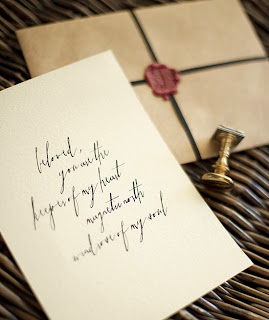 beloved,
you are the
keeper of my heart
magnetic north
wind rose of my soul